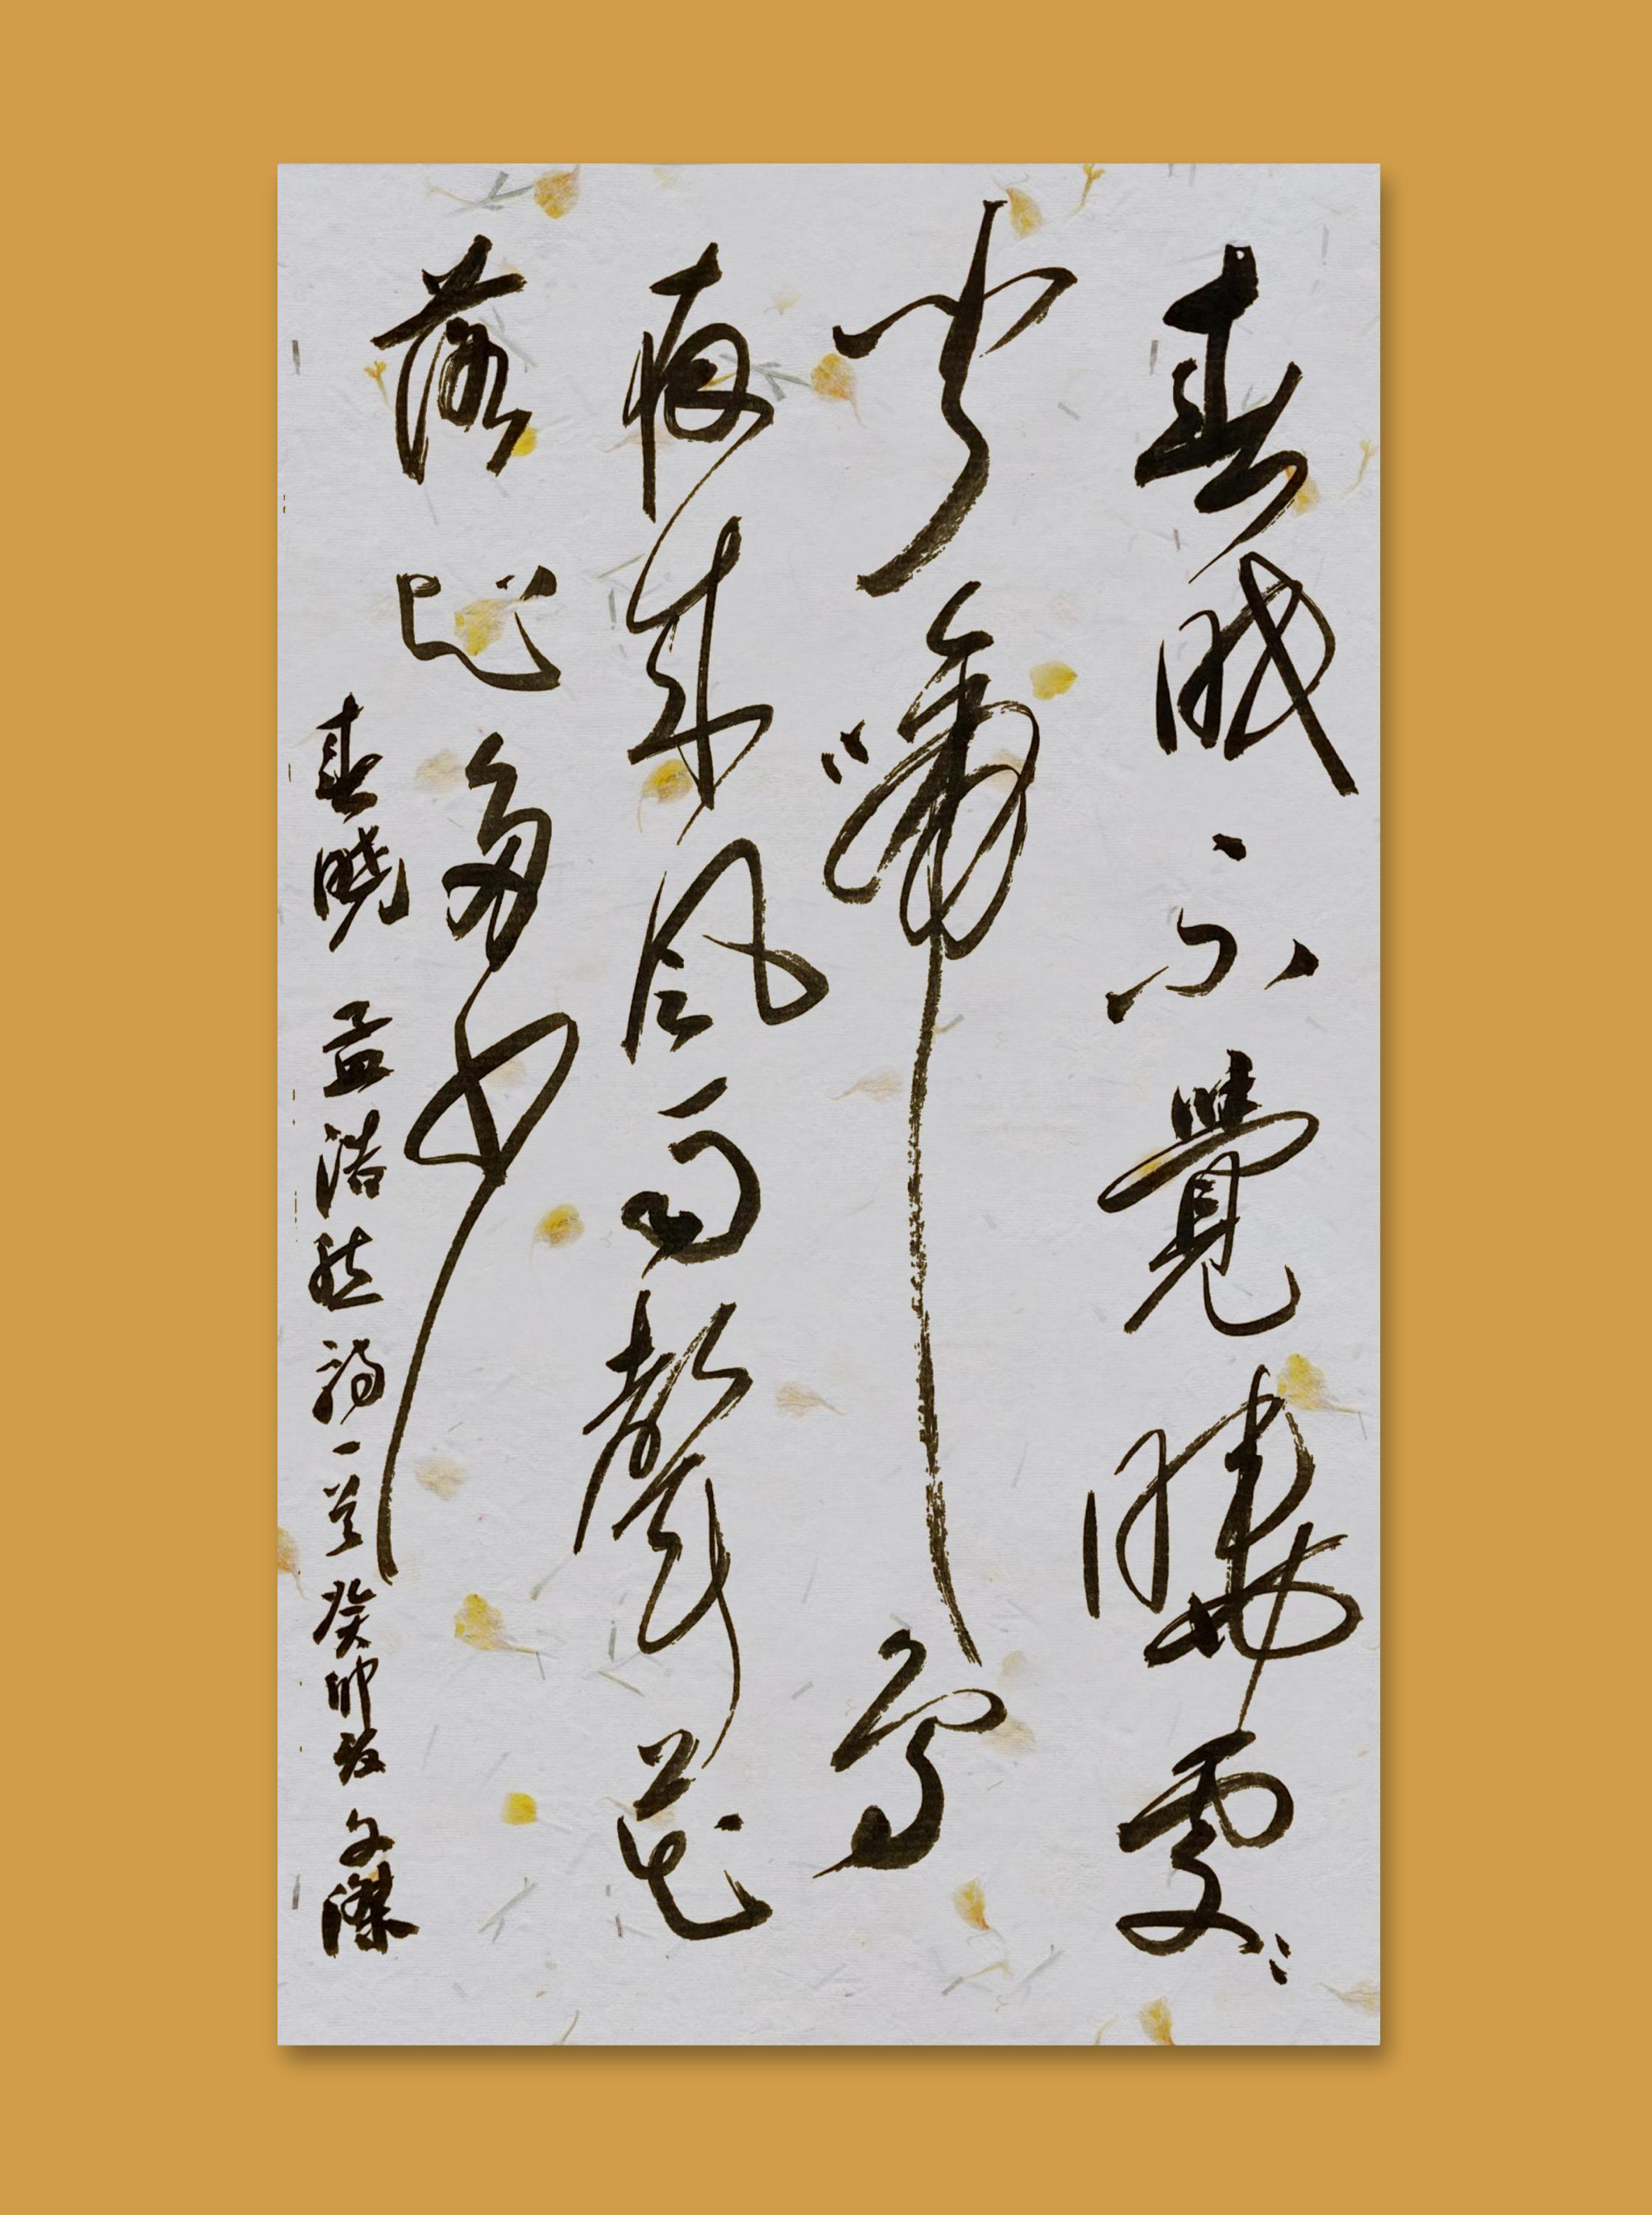 春眠不覺曉處〻
聞啼鳥
夜來風雨聲花
落知多少
春曉 孟浩然詩一首 癸卯 文